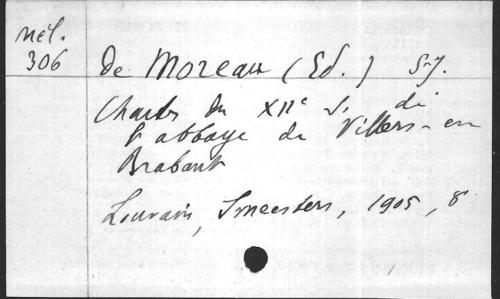 nél.
306
de Moreau (Ed.) S.J.
Chartes du XIIe s. de
l'abbaye de Villers-en
Brabant
Louvain, Smeesters, 1905, 8°